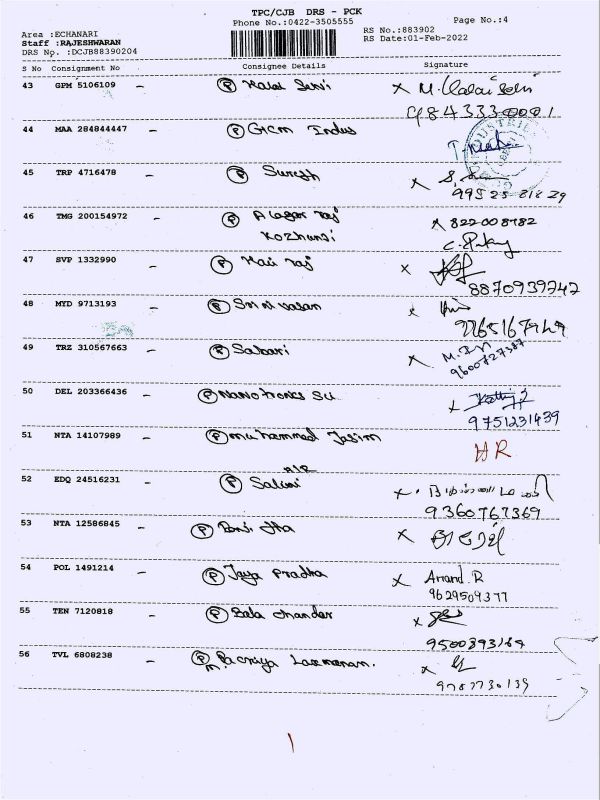 TPC/CJB DRS - PCK
Phone No.:0422-3505555
Page No.:4
Area :ECHANARI
Staff :RAJESHWARAN
DRS No. :DCJB88390204
RS No.:883902
RS Date:01-Feb-2022
S No Consignment No Consignee Details Signature
43 GPM 5106109 - P Kalai Selvi x M. Kalai Selvi
9843330001
44 MAA 284844447 - P GCM Indus
45 TRP 4716478 - P Suresh x
99525
46 TMG 200154972 - P Alagar raj x 822008782
Kozhunsi
47 SVP 1332990 - P Hari raj x
8870939742
48 MYD 9713193 - P Srinivasan x
49 TRZ 310567663 - P Sabari x
9600727387
50 DEL 203366436 - P Nanotronics x
9751231439
51 NTA 14107989 - P Muhammed Jasim HR
52 EDQ 24516231 - P x
9360767369
53 NTA 12586845 - P x
54 POL 1491214 - P Jaya Pradha x Anand.R
9629509377
55 TEN 7120818 - P Bala chander x
9500893169
56 TVL 6808238 - P x
9787730139
1